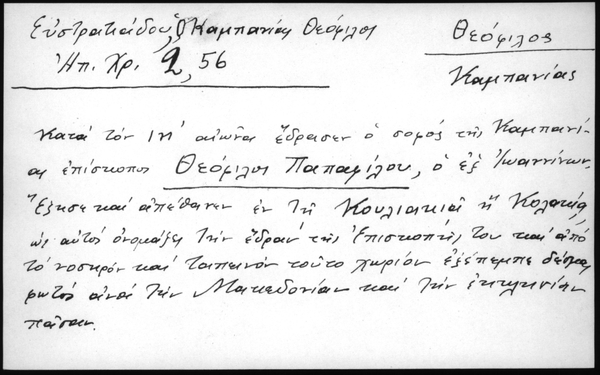 Εὐστρατιάδου, Ὁ Καμπανίας Θεόφιλος
Ἠπ. Χρ. 2, 56
Θεόφιλος
Καμπανίας
Κατά τόν ΙΗ' αἰῶνα ἔδρασεν ὁ σοφός τῆς Καμπανί-
ας ἐπίσκοπος Θεόφιλος Παπαφίλου, ὁ ἐξ Ἰωαννίνων.
Ἔζησε καί ἀπέθανεν ἐν τῇ Κουλιακιᾷ ἤ Κολακιᾷ,
ὡς αὐτός ὀνομάζει τήν ἕδραν τῆς Ἐπισκοπῆς του καί ἀπό
τό νοσηρόν καί ταπεινόν τοῦτο χωρίον ἐξέπεμπε δέσμας
φωτός ἀνά τήν Μακεδονίαν καί τήν ἐκκλησίαν
πᾶσαν.